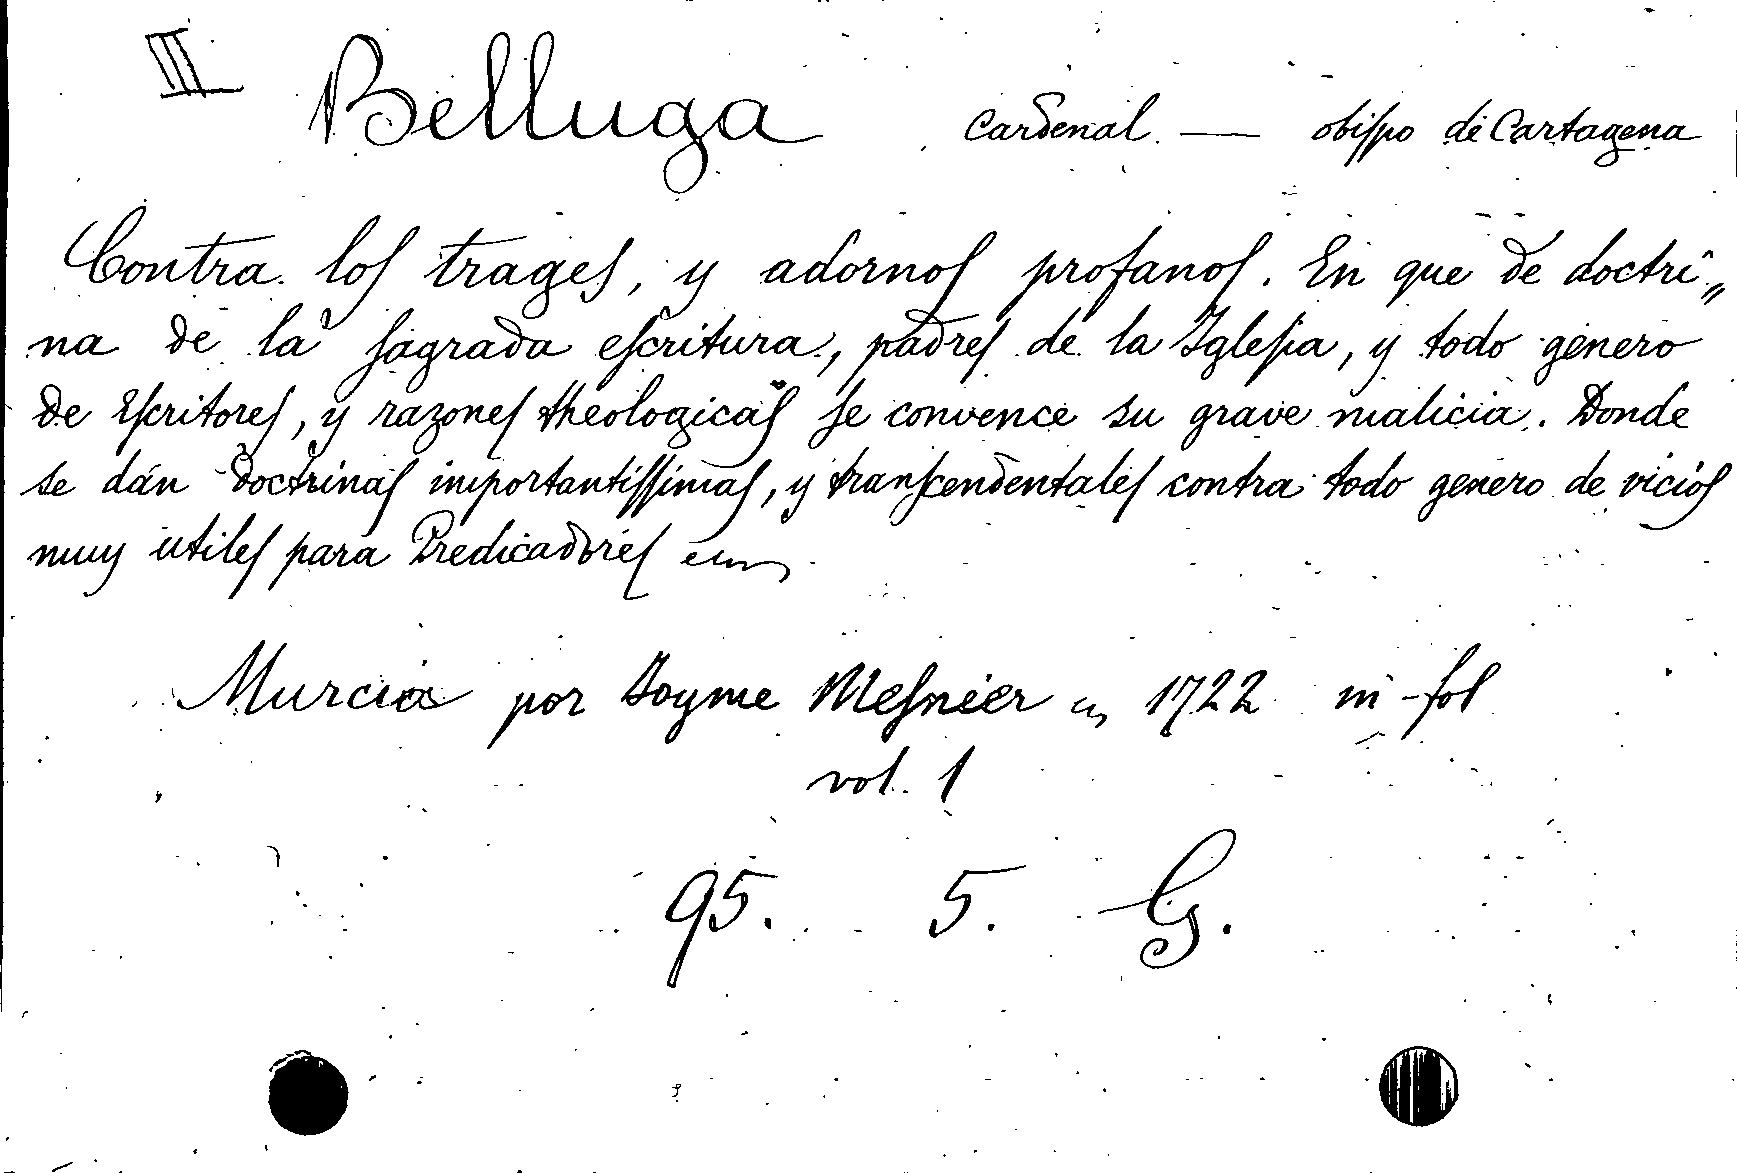 III Belluga cardenal — obiſpo de Cartagena
Contra loſ trageſ, y adornoſ profanoſ. En que de doctri„
na de la ſagrada eſcritura, padreſ de la Igleſia, y todo genero
de Eſcritoreſ, y razoneſ theologicaſ ſe convence su grave malicia. Donde
se dán doctrinaſ importantiſſimaſ, y tranſcendentaleſ contra todo genero de vicioſ
muy utileſ para Predicadoreſ
Murcia por Jayme Meſnier 1722 in-fol
vol. 1
95. 5. G.